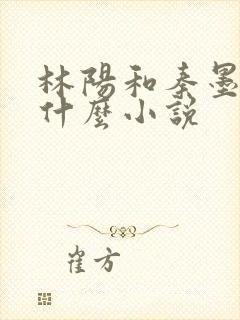 林陽和秦墨
什麼小說
崔方